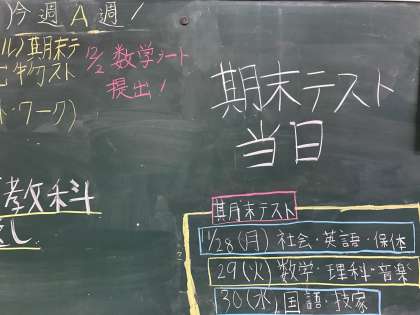 )今週A週!
ル)期末テ
スト
・ワーク)
12/2 数学シート
提出!
期末テスト
当日
教科
し
期末テスト
11/28(月) 社会・英語・保体
29(火) 数学・理科・音楽
30(水) 国語・技家